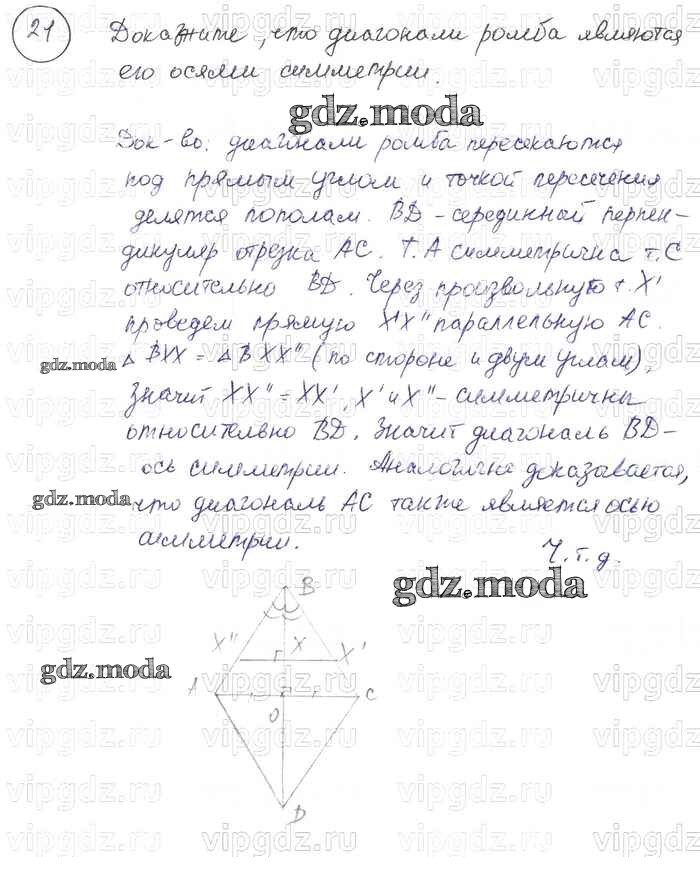 21 Докажите, что диагонали ромба являются
его осями симметрии.
gdz.moda
Док-во: диагонали ромба пересекаются
под прямым углом и точкой пересечения
делятся пополам. BD - серединный перпен-
дикуляр отрезка AC. Т. A симметрична т. C
относительно BD. Через произвольную т. X'
проведем прямую X'X" параллельную AC.
gdz.moda
△ BXX = △ BXX" (по стороне и двум углам),
Значит XX" = XX', X' и X" - симметричны
относительно BD. Значит диагональ BD -
ось симметрии. Аналогично доказывается,
gdz.moda
что диагональ AC также является осью
симметрии.
Ч.т.д.
gdz.moda
B
X" X X'
gdz.moda
A C
O
D
vipgdz.ru